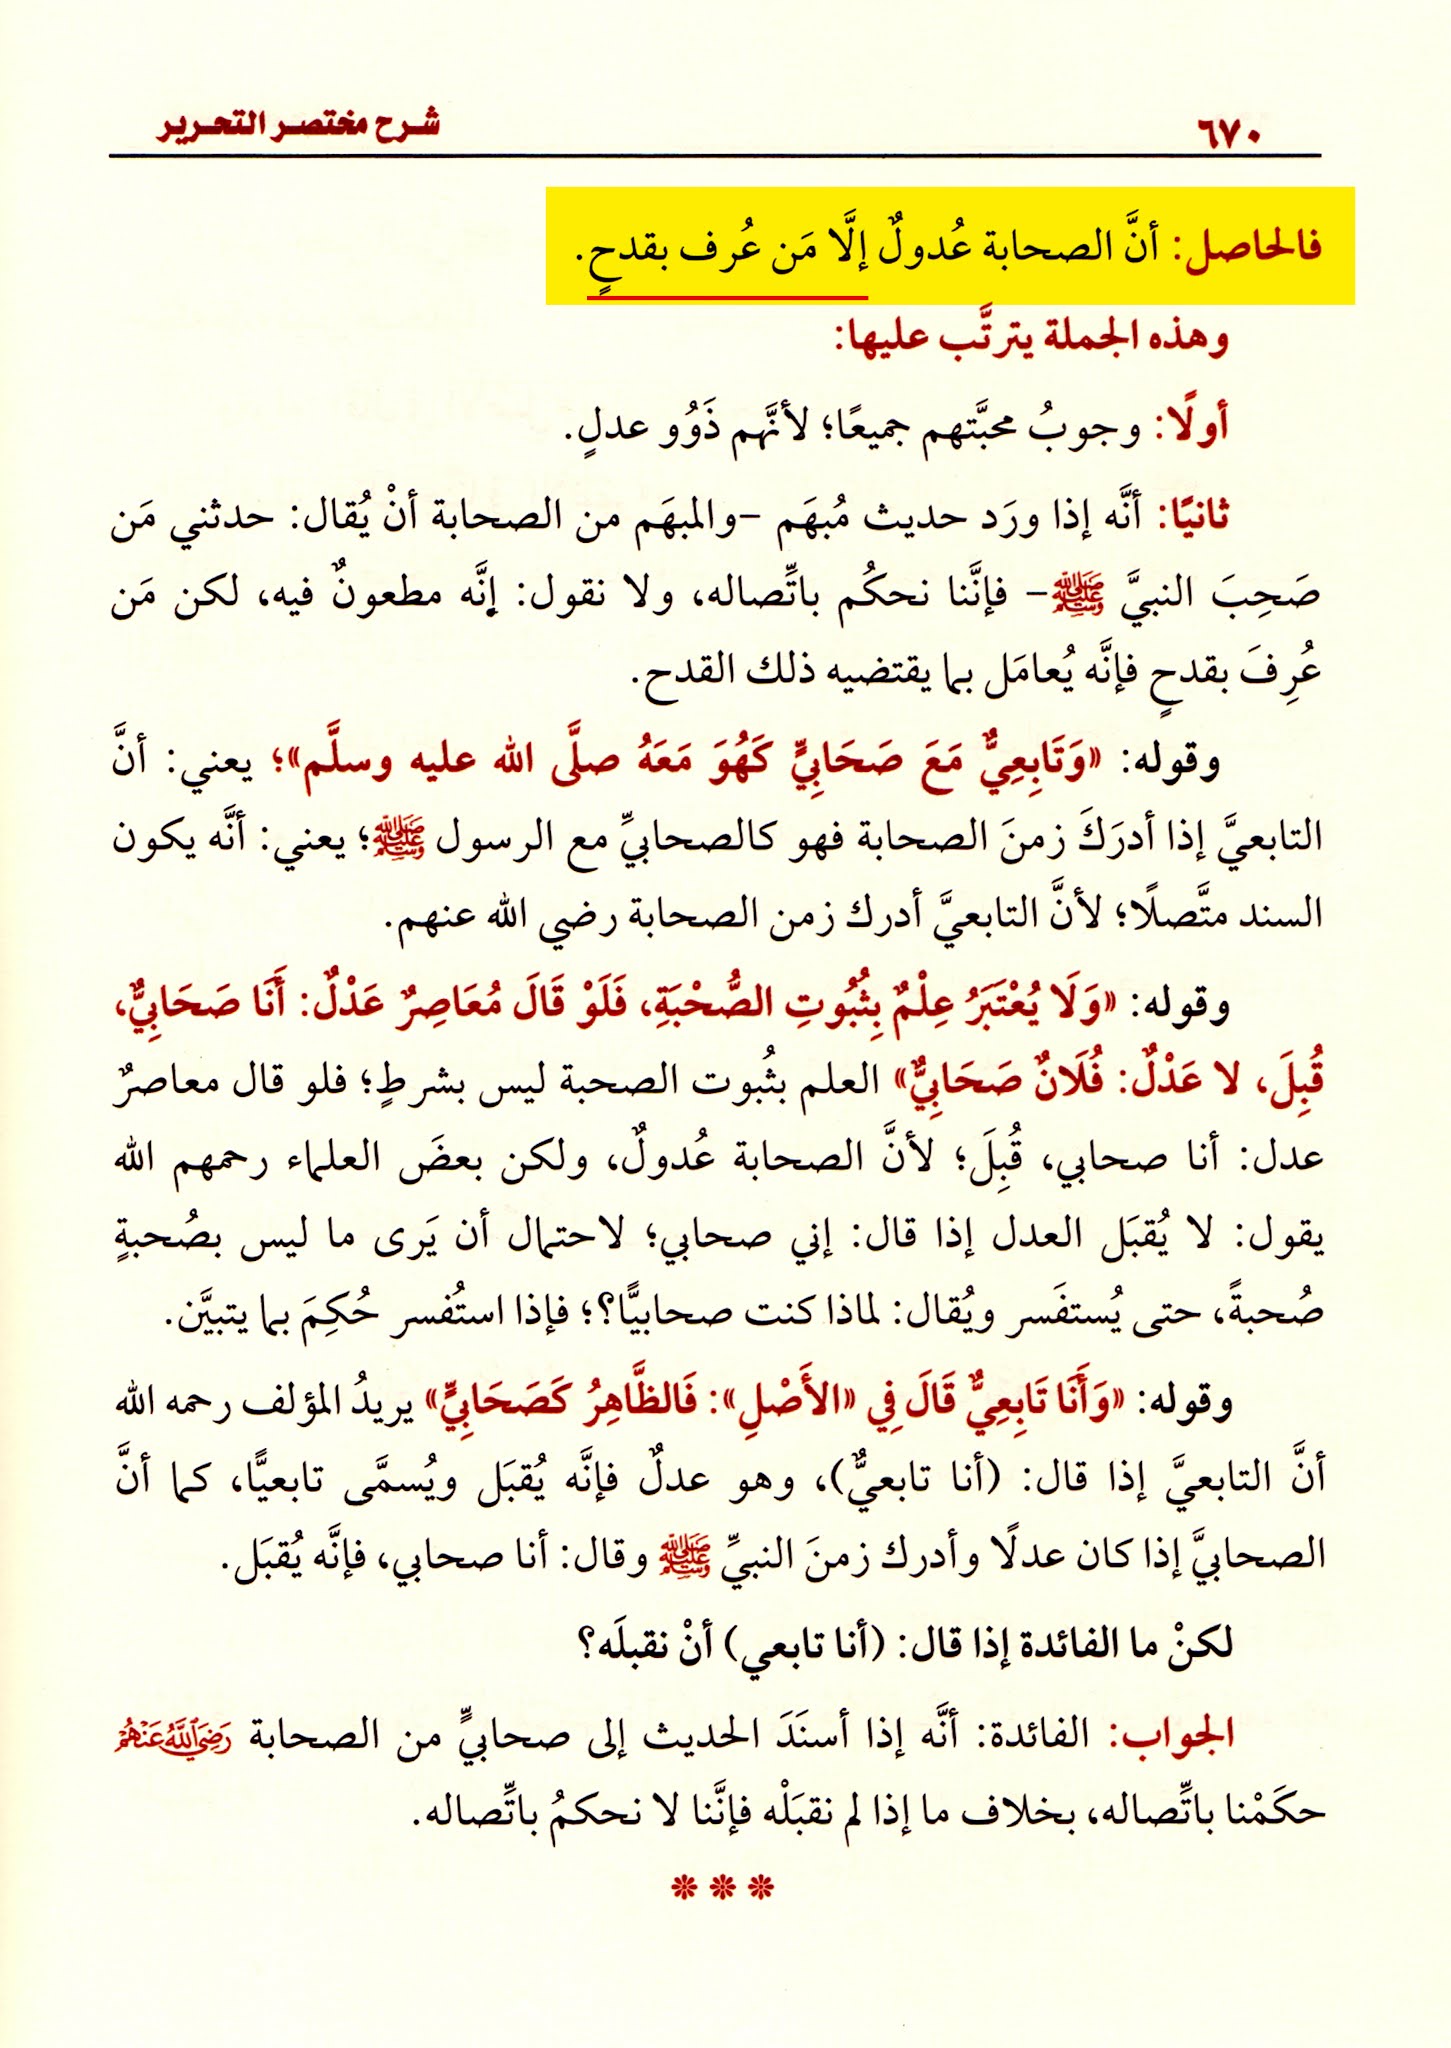 ٦٧٠ شرح مختصر التحرير
فالحاصل: أنَّ الصحابة عُدولٌ إلَّا مَن عُرف بقدحٍ.
وهذه الجملة يترتَّب عليها:
أولًا: وجوبُ محبَّتهم جميعًا؛ لأنَّهم ذَوُو عدلٍ.
ثانيًا: أنَّه إذا ورَد حديث مُبهَم –والمبهَم من الصحابة أنْ يُقال: حدثني مَن
صَحِبَ النبيَّ ﷺ– فإنَّنا نحكُم باتِّصاله، ولا نقول: إنَّه مطعونٌ فيه، لكن مَن
عُرِفَ بقدحٍ فإنَّه يُعامَل بما يقتضيه ذلك القدح.
وقوله: «وَتَابِعِيٌّ مَعَ صَحَابِيٍّ كَهُوَ مَعَهُ صلَّى الله عليه وسلَّم»؛ يعني: أنَّ
التابعيَّ إذا أدرَكَ زمنَ الصحابة فهو كالصحابيِّ مع الرسول ﷺ؛ يعني: أنَّه يكون
السند متَّصلًا؛ لأنَّ التابعيَّ أدرك زمن الصحابة رضي الله عنهم.
وقوله: «وَلَا يُعْتَبَرُ عِلْمٌ بِثُبُوتِ الصُّحْبَةِ، فَلَوْ قَالَ مُعَاصِرٌ عَدْلٌ: أَنَا صَحَابِيٌّ،
قُبِلَ، لا عَدْلٌ: فُلَانٌ صَحَابِيٌّ» العلم بثُبوت الصحبة ليس بشرطٍ؛ فلو قال معاصرٌ
عدل: أنا صحابي، قُبِلَ؛ لأنَّ الصحابة عُدولٌ، ولكن بعضَ العلماء رحمهم الله
يقول: لا يُقبَل العدل إذا قال: إني صحابي؛ لاحتمال أن يَرى ما ليس بصُحبةٍ
صُحبةً، حتى يُستفَسر ويُقال: لماذا كنت صحابيًّا؟؛ فإذا استُفسر حُكِمَ بما يتبيَّن.
وقوله: «وَأَنَا تَابِعِيٌّ قَالَ فِي «الأَصْلِ»: فَالظَّاهِرُ كَصَحَابِيٍّ» يريدُ المؤلف رحمه الله
أنَّ التابعيَّ إذا قال: (أنا تابعيٌّ)، وهو عدلٌ فإنَّه يُقبَل ويُسمَّى تابعيًّا، كما أنَّ
الصحابيَّ إذا كان عدلًا وأدرك زمنَ النبيِّ ﷺ وقال: أنا صحابي، فإنَّه يُقبَل.
لكنْ ما الفائدة إذا قال: (أنا تابعي) أنْ نقبلَه؟
الجواب: الفائدة: أنَّه إذا أسنَدَ الحديث إلى صحابيٍّ من الصحابة رَضِيَ اللَّهُ عَنْهُمْ
حكَمْنا باتِّصاله، بخلاف ما إذا لم نقبَلْه فإنَّنا لا نحكمُ باتِّصاله.